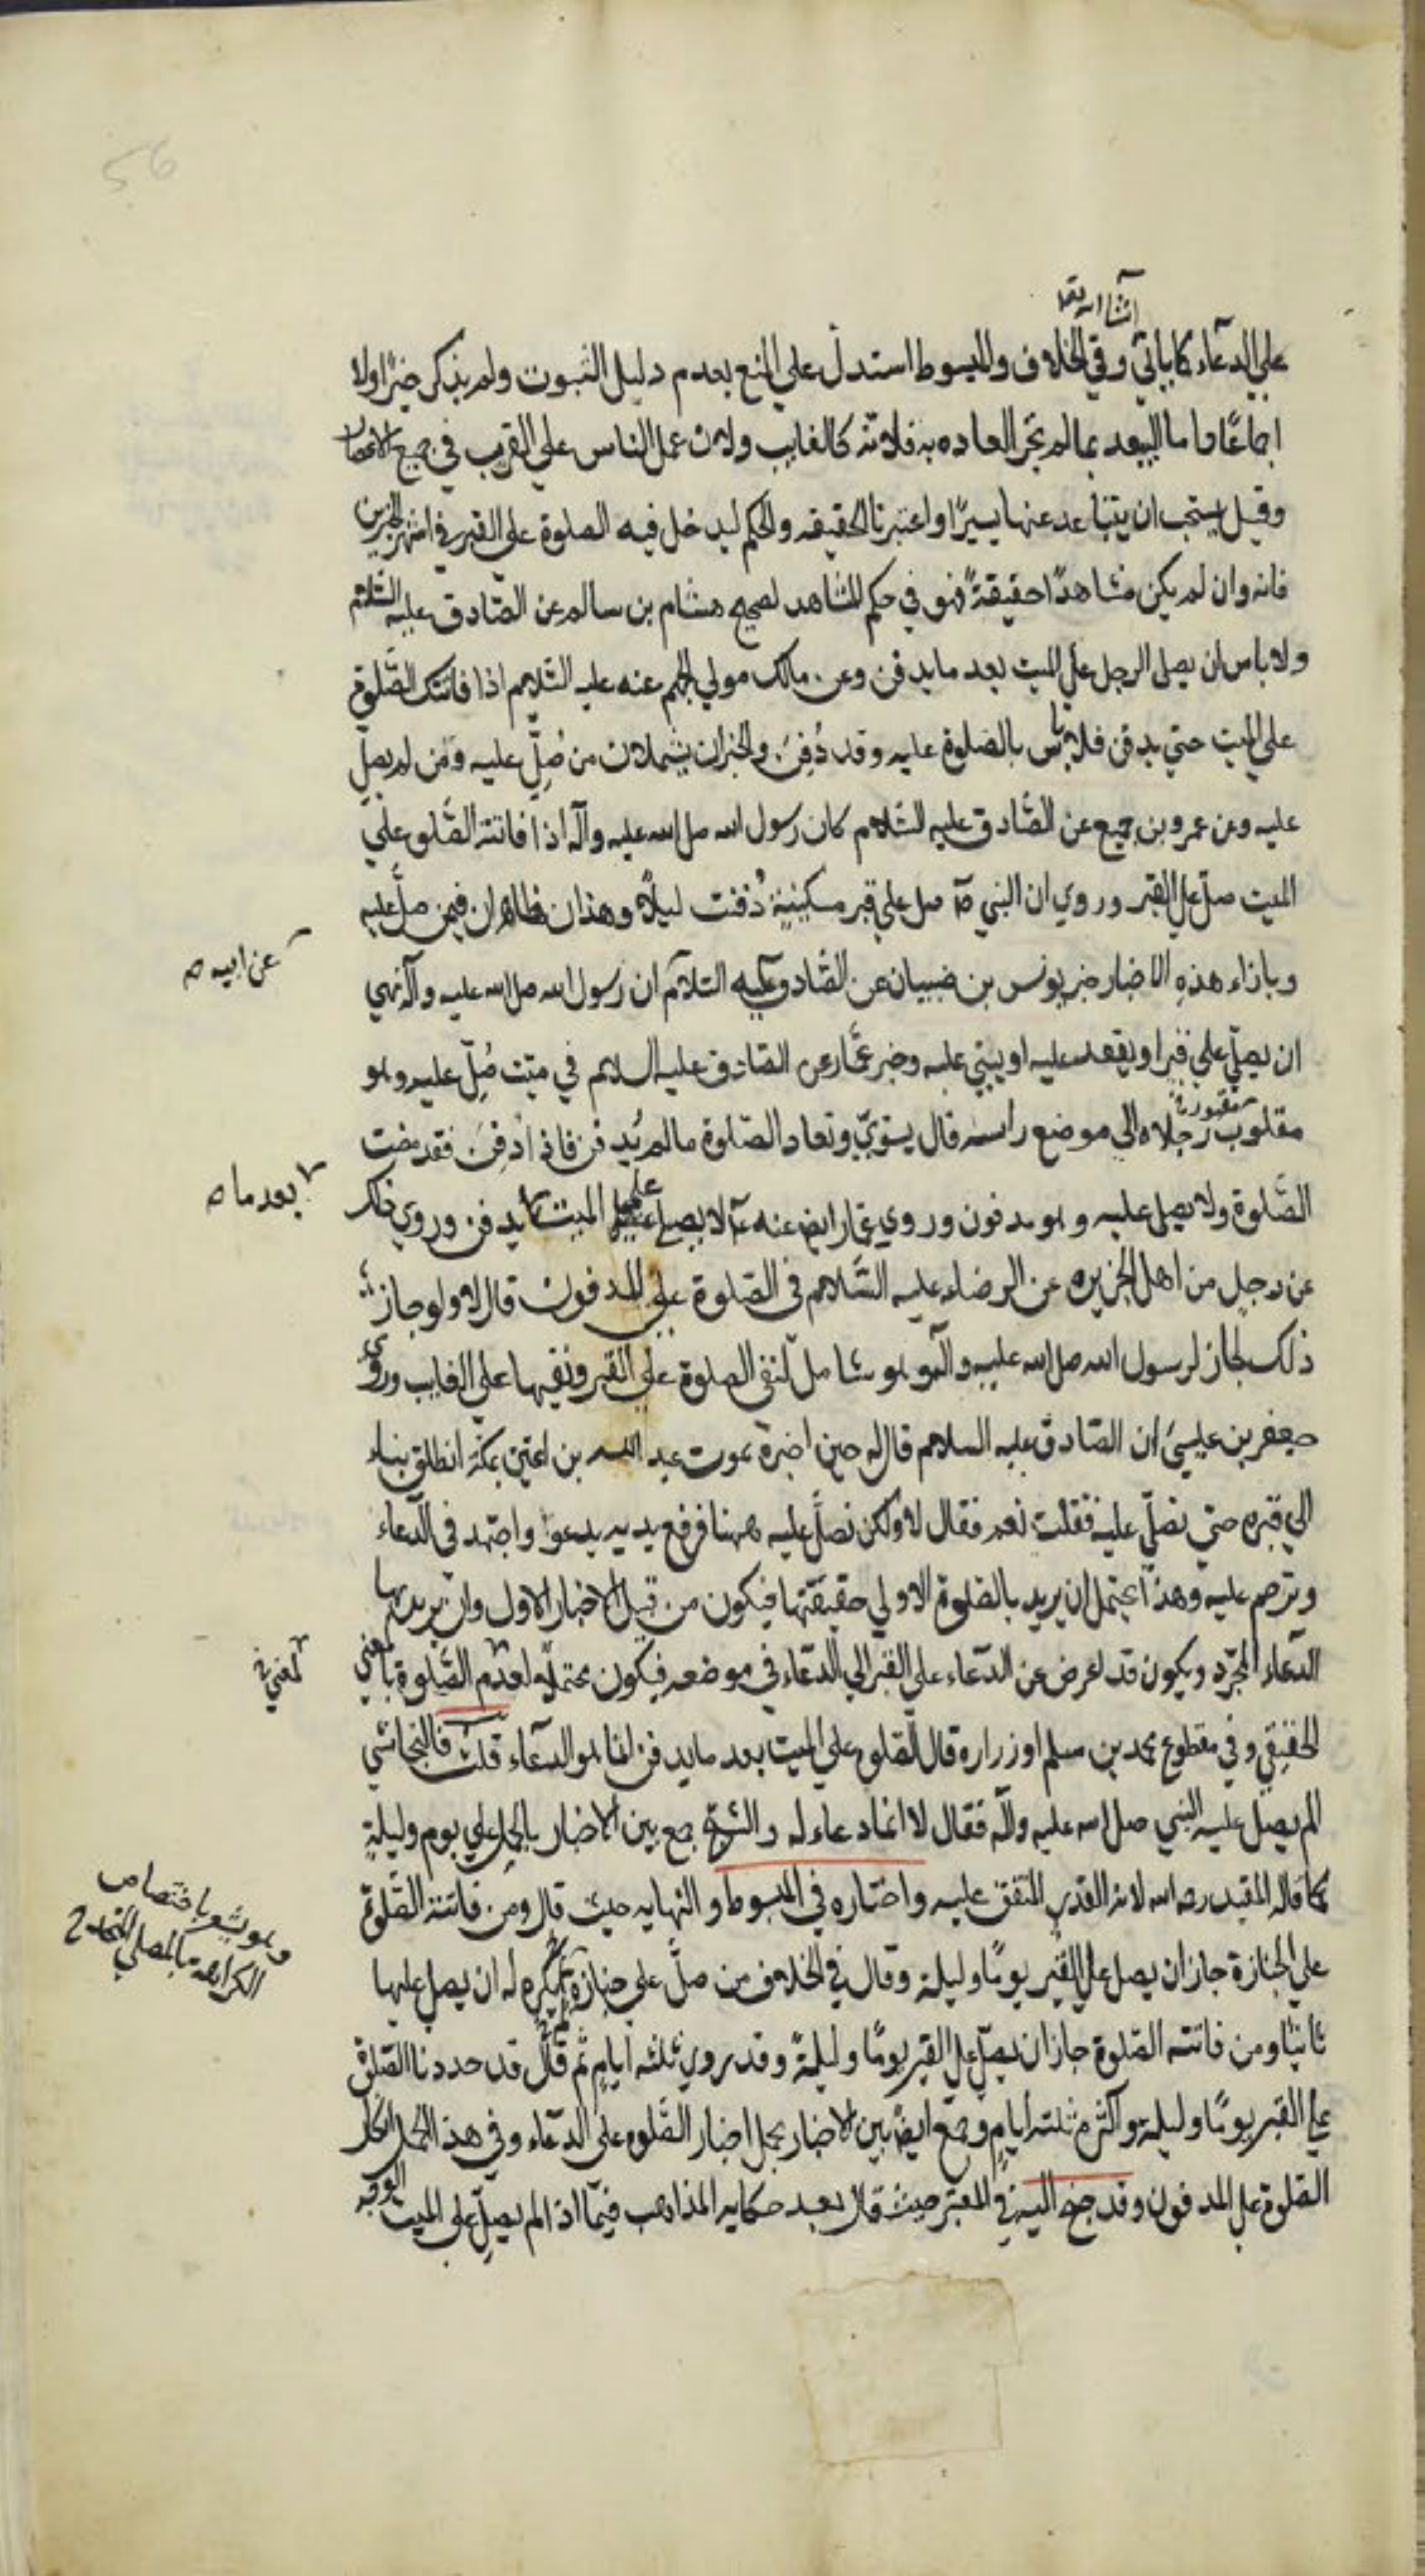 ان شاء الله تعا
على الدعاء كما ياتي وفي الخلاف والمبسوط استدل على المنع بعدم دليل الثبوت ولم يذكر خبرًا ولا
اجماعًا واما البعد بما لم تجر العاده به فلانه كالغايب ولان عمل الناس على القرب في جميع الاعصار
وقيل يستحب ان يتباعد عنها يسيرًا واعتبرنا الحقيقه والحكم ليدخل فيه الصلوة على القبر في اشهر الخبرين
فانه وان لم يكن مشاهدًا حقيقةً فهو في حكم المشاهد لصحيح هشام بن سالم عن الصادق عليه السلام
ولا باس ان يصلى الرجل على الميت بعد ما يدفن وعن مالك مولي الجهم عنه عليه السلام اذا فاتتك الصلوة
على الميت حتي يدفن فلا باس بالصلوة عليه وقد دُفِنَ والخبران يشملان من صُلِّ عليه ومن لم يصل
عليه وعن عمرو بن جميع عن الصادق عليه السلام كان رسول الله صل الله عليه وآله اذا فاتته الصلوة علي
الميت صلّ على القبر وروي ان النبي ص صل علي قبر مسكينة دُفنت ليلًا وهذان ظاهران فيمن صلّ عليه
وبازاء هذه الاخبار خبر يونس بن ضبيان عن الصادق عليه السلام ان رسول الله صل الله عليه وآله نهي
عن ابيه ه
ان يصلّي علي قبر او يقعد عليه او يبني عليه وخبر عمّار عن الصادق عليه السلام في ميّت صُلِّ عليه وهو
مقلوب رجلاه الي موضع راسه قال يسوّي وتعاد الصلوة ما لم يُدفن فاذا دفن فقد مضت
الصّلوة ولا يصل عليه وهو مدفون وروي عمّار ايض عنه ع لا يصل على الميت يدفن وروي ذلك
بعد ما ه
عن رجل من اهل الجزيره عن الرضاء عليه السلام في الصلوة على المدفون قال لا ولو جاز
ذلك لجاز لرسول الله صل الله عليه وآله وهو شامل لنفى الصلوة على القبر ونفيها على الغايب وروى
جعفر بن عيسى ان الصادق عليه السلام قال له حين اخبره بموت عبد الله بن اعين بمكة انطلق بناء
الي قبره حتي نصلّي عليه فقلت نعم فقال لا ولكن نصلّ عليه ههنا فرفع يديه يدعوا واجتهد في الدعاء
وترحم عليه وهذا يحتمل ان يريد بالصلوة الاولي حقيقتها فيكون من قبيل الاخبار الاول وان يريد بها
الدعاء المجرّد ويكون قد اعرض عن الدعاء على القبر الي الدعاء في موضعه فيكون محتملًا لعدم الصلوة بالمعني
الحقيقي وفي مقطوع محمد بن مسلم او زراره قال الصلوة علي الميت بعد ما يدفن انما هو الدعاء قلت فالنجاشي
الم يصل عليه النبي صل الله عليه وآله فقال لا انما دعاء له والشيخ جمع بين الاخبار بالحمل علي يوم وليلة
كما قاله المفيد رحمه الله لانه القدر المتفق عليه واختاره في المبسوط والنهايه حيث قال ومن فاتته الصلوة
على الجنازة جاز ان يصل على القبر يومًا وليلة وقال في الخلاف من صلّ علي جنازة يكره له ان يصل عليها
وهو يشعر باختصاص
الكراهه بالمصلي المتحد
ثانيًا ومن فاتته الصلوة جاز ان يصلّ على القبر يومًا وليلةً وقد روي ثلثه ايام ثم قال قد حددنا الصلوة
على القبر يومًا وليلة واكثره ثلثه ايام وجمع ايضًا بين الاخبار بحمل اخبار الصلوه على الدعاء وفي هذا الحمل انكار
الصلوة على المدفون وقد جنح اليه في المعتبر حيث قال بعد حكايه المذاهب فيما اذا لم يصل على الميت الوجه